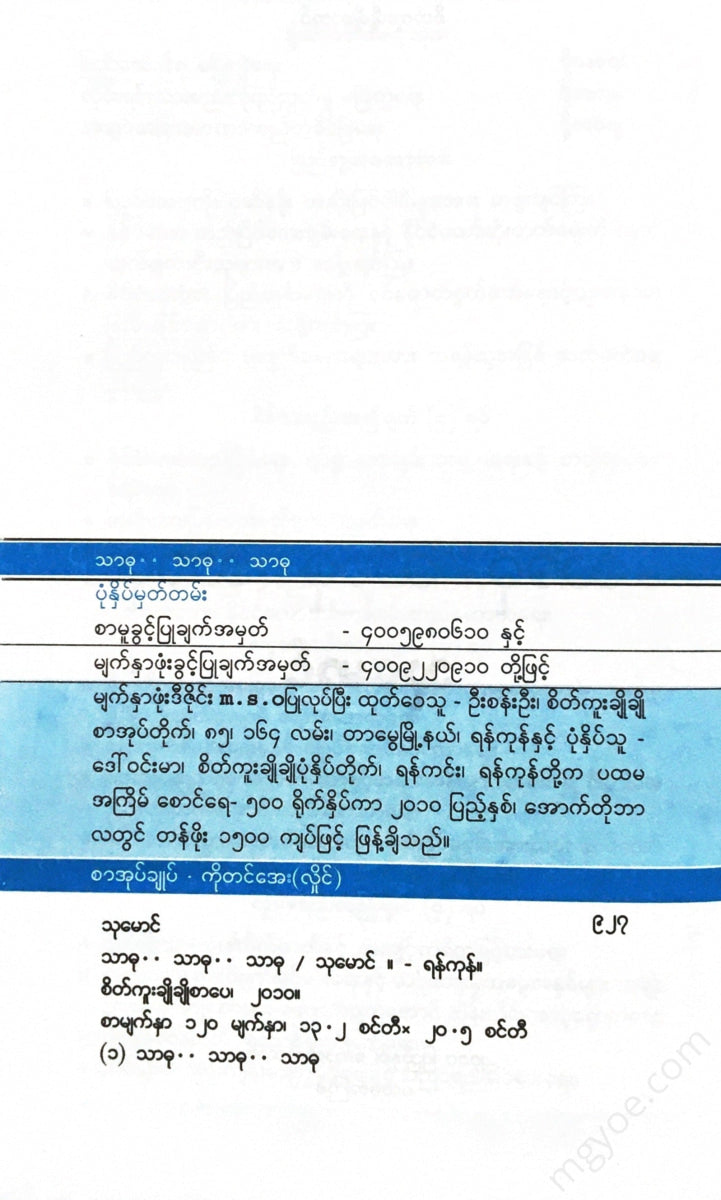 သာဓု·· သာဓု·· သာဓု
ပုံနှိပ်မှတ်တမ်း
စာမူခွင့်ပြုချက်အမှတ် - ၄၀၀၅၉၈၀၆၁၀ နှင့်
မျက်နှာဖုံးခွင့်ပြုချက်အမှတ် - ၄၀၀၉၂၂၀၉၁၀ တို့ဖြင့်
မျက်နှာဖုံးဒီဇိုင်း m.s.oပြုလုပ်ပြီး ထုတ်ဝေသူ - ဦးစန်းဦး၊ စိတ်ကူးချိုချို
စာအုပ်တိုက်၊ ၈၅၊ ၁၆၄ လမ်း၊ တာမွေမြို့နယ်၊ ရန်ကုန်နှင့် ပုံနှိပ်သူ -
ဒေါ်ဝင်းမာ၊ စိတ်ကူးချိုချိုပုံနှိပ်တိုက်၊ ရန်ကင်း၊ ရန်ကုန်တို့က ပထမ
အကြိမ် စောင်ရေ- ၅၀၀ ရိုက်နှိပ်ကာ ၂၀၁၀ ပြည့်နှစ်၊ အောက်တိုဘာ
လတွင် တန်ဖိုး ၁၅၀၀ ကျပ်ဖြင့် ဖြန့်ချိသည်။
စာအုပ်ချုပ် - ကိုတင်အေး(လှိုင်)
သုမောင် ၉၂၇
သာဓု·· သာဓု·· သာဓု / သုမောင် ။ - ရန်ကုန်။
စိတ်ကူးချိုချိုစာပေ၊ ၂၀၁၀။
စာမျက်နှာ ၁၂၀ မျက်နှာ၊ ၁၃·၂ စင်တီ× ၂၀·၅ စင်တီ
(၁) သာဓု·· သာဓု·· သာဓု
mgyoe.com